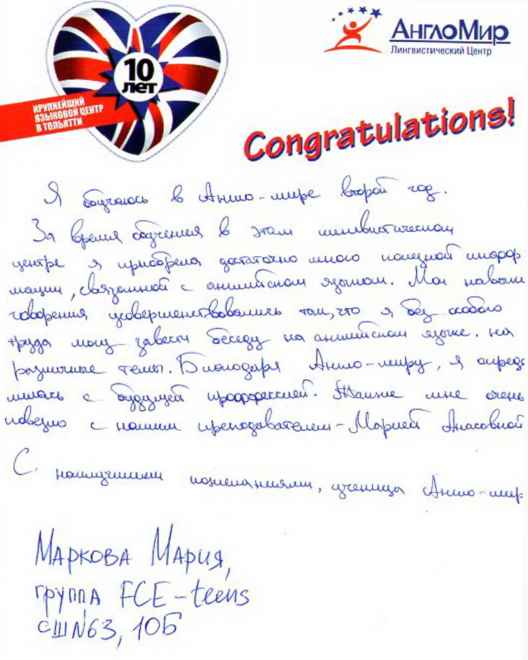 10
ЛЕТ
КРУПНЕЙШИЙ
ЯЗЫКОВОЙ ЦЕНТР
В ТОЛЬЯТТИ
АнглоМир
Лингвистический Центр
Congratulations!
Я обучаюсь в Англо-мире второй год.
За время обучения в этом лингвистическом
центре я приобрела достаточно много полезной инфор
мации, связанной с английским языком. Мои навыки
говорения усовершенствовались тем, что я без особого
труда могу завести беседу на английском языке на
различные темы. Благодаря Англо-миру, я опреде
лилась с будущей профессией. Также мне очень
повезло с нашим преподавателем - Марией Власовной
С наилучшими пожеланиями, ученица Англо-мир
Маркова Мария,
группа FCE-teens
СШ№63, 10Б